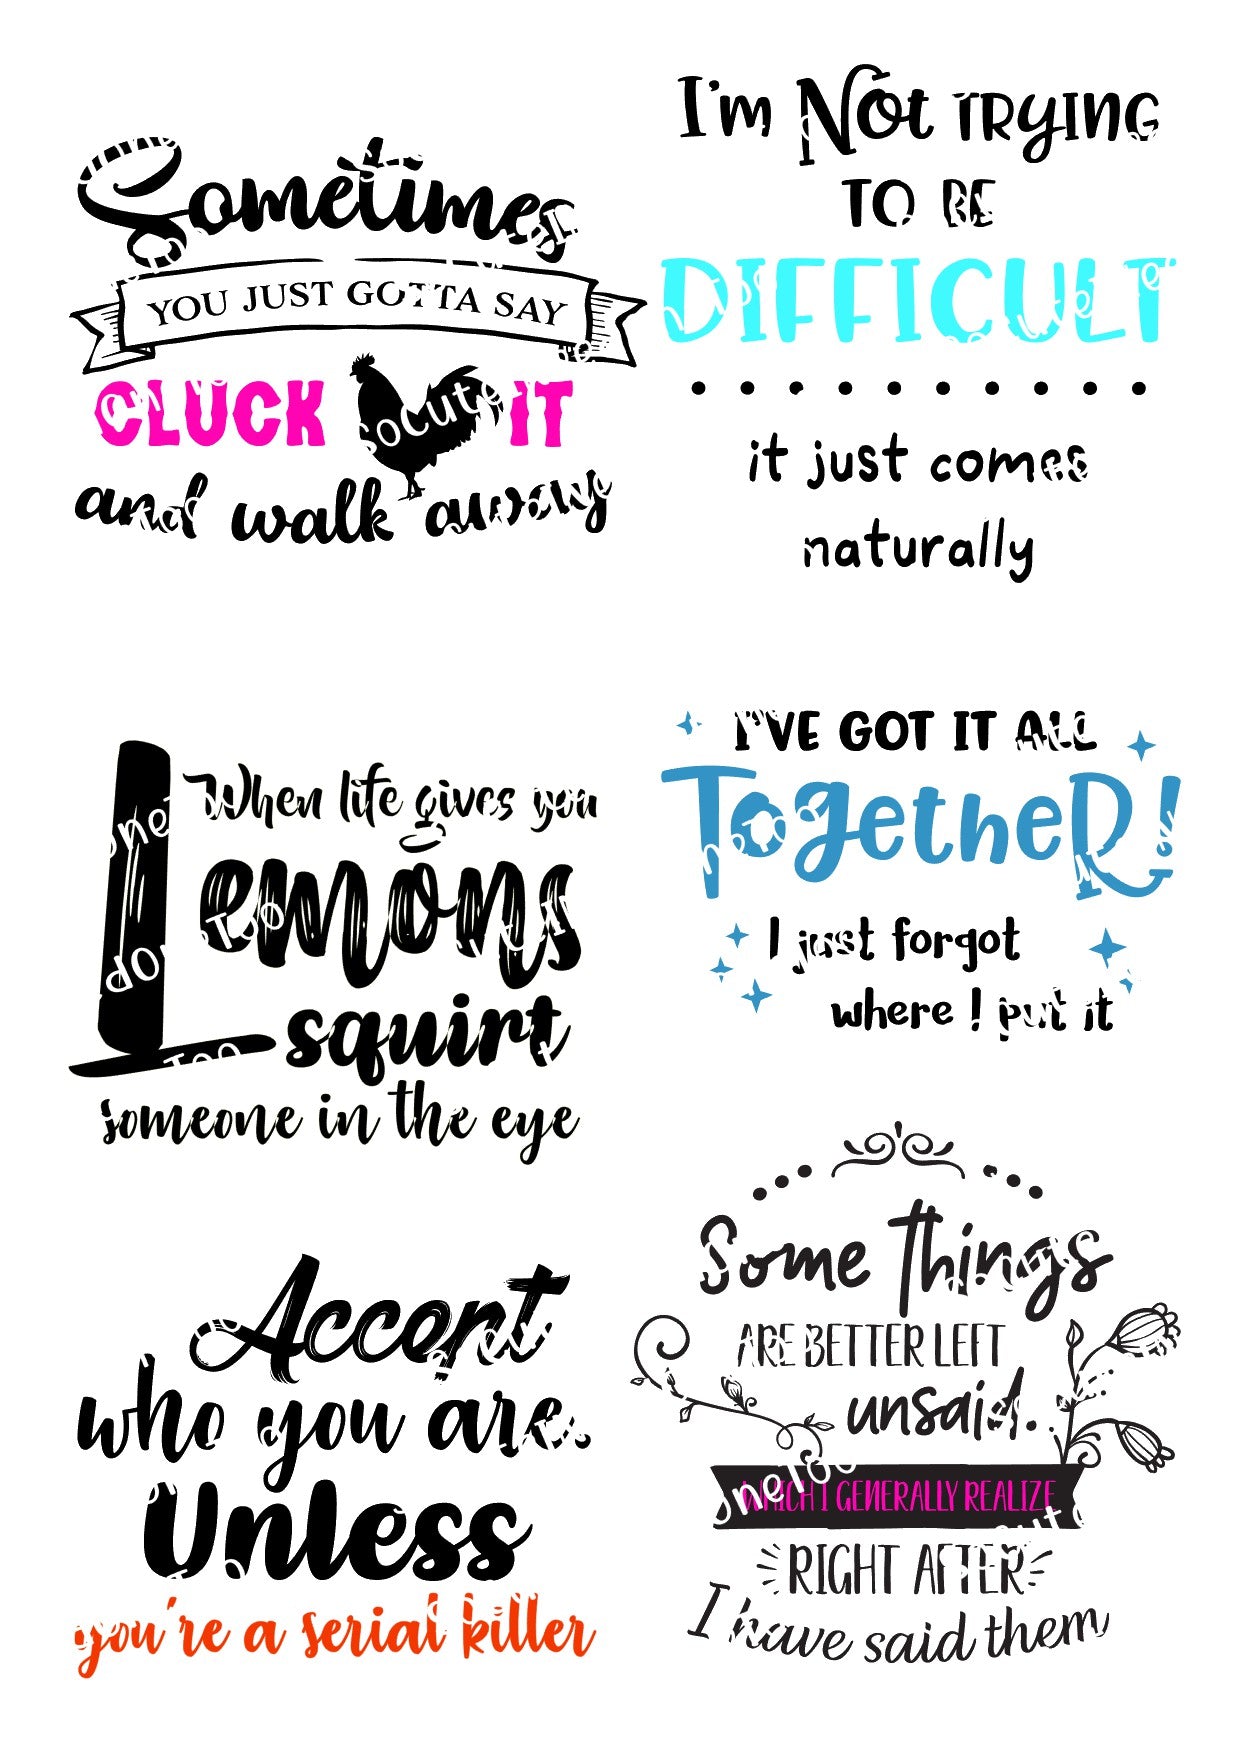 Sometimes
YOU JUST GOTTA SAY
CLUCK IT
and walk away
I'm Not TRYING
TO BE
DIFFICULT
it just comes
naturally
When life gives you
Lemons
squirt
someone in the eye
I'VE GOT IT ALL
TogetheR!
I just forgot
where I put it
Accept
who you are.
Unless
you're a serial killer
Some things
ARE BETTER LEFT
unsaid.
WHICH I GENERALLY REALIZE
RIGHT AFTER
I have said them